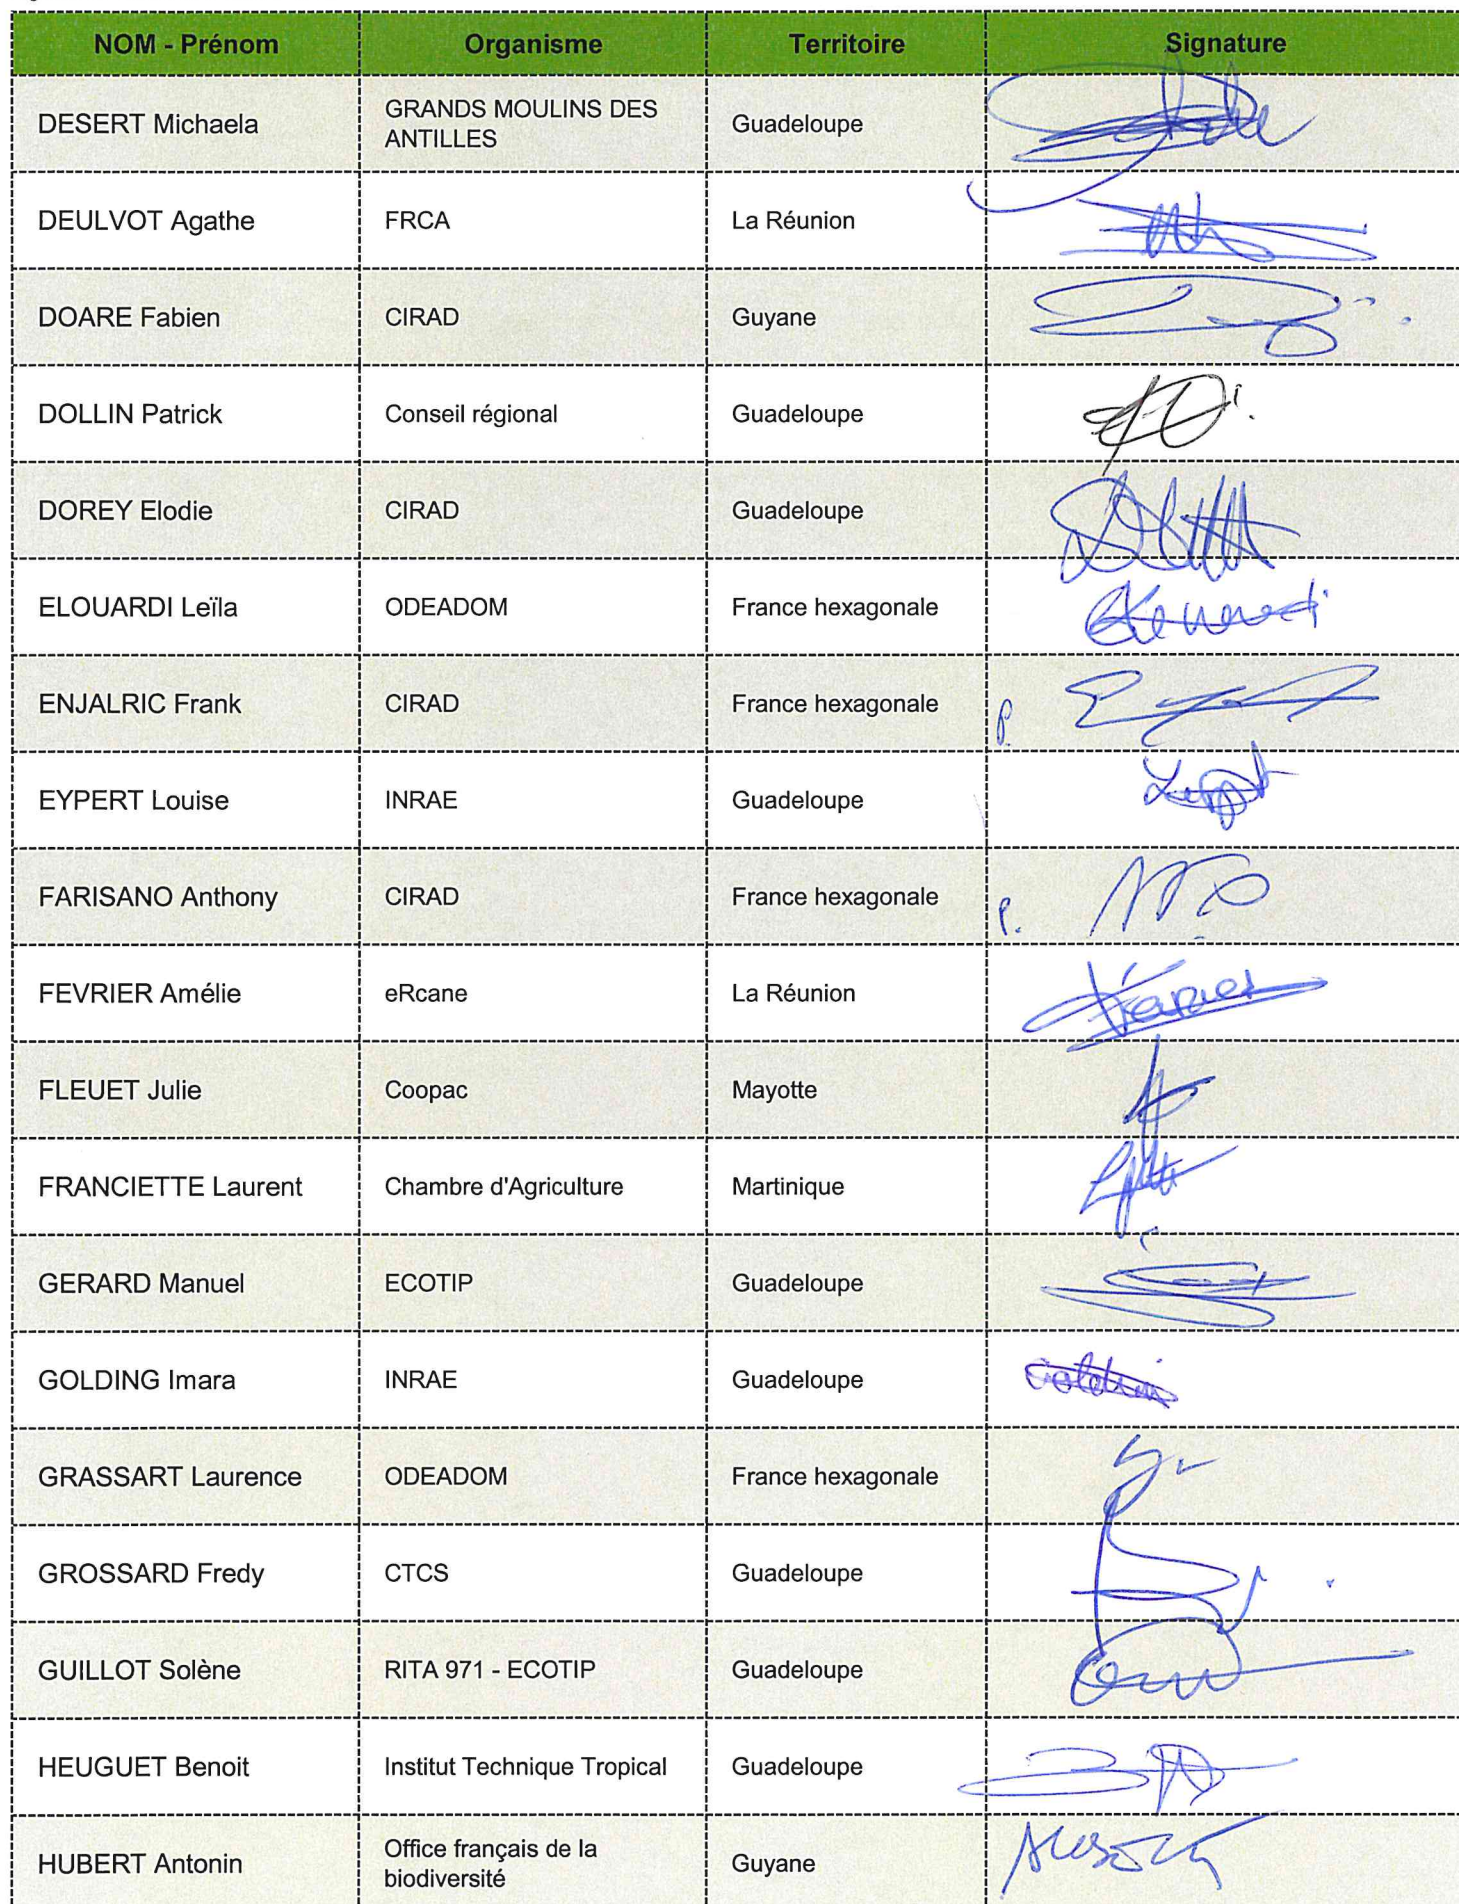 NOM - Prénom Organisme Territoire Signature
DESERT Michaela GRANDS MOULINS DES
ANTILLES Guadeloupe
DEULVOT Agathe FRCA La Réunion
DOARE Fabien CIRAD Guyane
DOLLIN Patrick Conseil régional Guadeloupe
DOREY Elodie CIRAD Guadeloupe
ELOUARDI Leïla ODEADOM France hexagonale
ENJALRIC Frank CIRAD France hexagonale P.
EYPERT Louise INRAE Guadeloupe
FARISANO Anthony CIRAD France hexagonale P.
FEVRIER Amélie eRcane La Réunion
FLEUET Julie Coopac Mayotte
FRANCIETTE Laurent Chambre d'Agriculture Martinique
GERARD Manuel ECOTIP Guadeloupe
GOLDING Imara INRAE Guadeloupe
GRASSART Laurence ODEADOM France hexagonale
GROSSARD Fredy CTCS Guadeloupe
GUILLOT Solène RITA 971 - ECOTIP Guadeloupe
HEUGUET Benoit Institut Technique Tropical Guadeloupe
HUBERT Antonin Office français de la
biodiversité Guyane